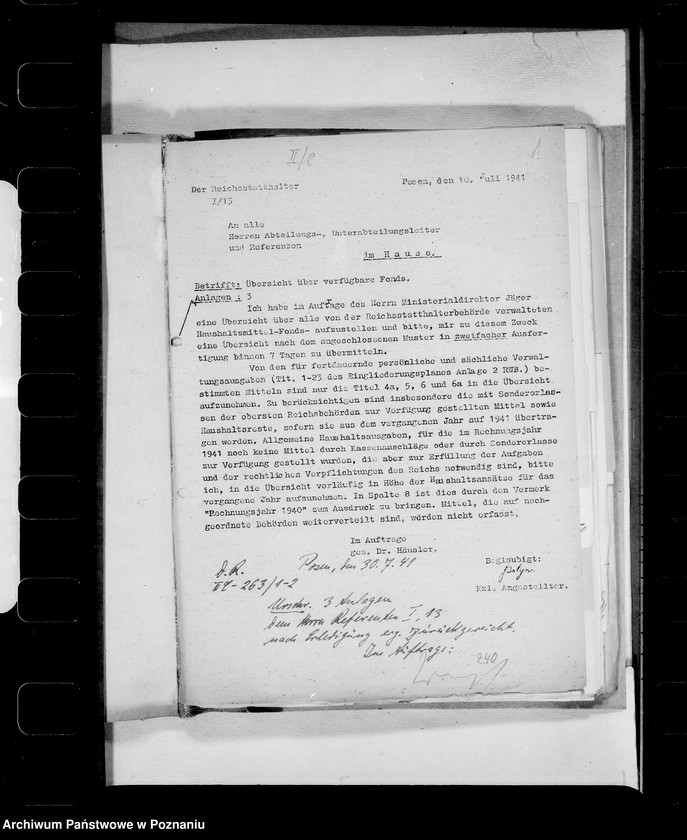 II/e
1
Der Reichsstatthalter
Posen, den 10. Juli 1941
I/13
An alle
Herren Abteilungs-, Unterabteilungsleiter
und Referenten
im Hause.
Betrifft: Übersicht über verfügbare Fonds.
Anlagen : 3
Ich habe im Auftrage des Herrn Ministerialdirektor Jäger
eine Übersicht über alle von der Reichsstatthalterbehörde verwalteten
Haushaltsmittel-Fonds- aufzustellen und bitte, mir zu diesem Zweck
eine Übersicht nach dem angeschlossenen Muster in zweifacher Ausfer-
tigung binnen 7 Tagen zu übermitteln.
Von den für fortdauernde persönliche und sächliche Verwal-
tungsausgaben (Tit. 1-23 des Eingliederungsplanes Anlage 2 RWB.) be-
stimmten Mitteln sind nur die Titel 4a, 5, 6 und 6a in die Übersicht
aufzunehmen. Zu berücksichtigen sind insbesondere die mit Sondererlas-
sen der obersten Reichsbehörden zur Verfügung gestellten Mittel sowie
Haushaltsreste, sofern sie aus dem vergangenen Jahr auf 1941 übertra-
gen werden. Allgemeine Haushaltsausgaben, für die im Rechnungsjahr
1941 noch keine Mittel durch Kassenanschläge oder durch Sondererlasse
zur Verfügung gestellt wurden, die aber zur Erfüllung der Aufgaben
und der rechtlichen Verpflichtungen des Reichs notwendig sind, bitte
ich, in die Übersicht vorläufig in Höhe der Haushaltsansätze für das
vergangene Jahr aufzunehmen. In Spalte 8 ist dies durch den Vermerk
"Rechnungsjahr 1940" zum Ausdruck zu bringen. Mittel, die auf nach-
geordnete Behörden weiterverteilt sind, würden nicht erfasst.
Im Auftrage
gez. Dr. Häusler.
Beglaubigt:
Kzl. Angestellter.
D. R.
Posen, den 30.7.41
263/1-2
Urschr. 3 Anlagen
dem Herrn Referenten I, 13
nach Erledigung erg. zurückgereicht.
Im Auftrage:
240
Archiwum Państwowe w Poznaniu